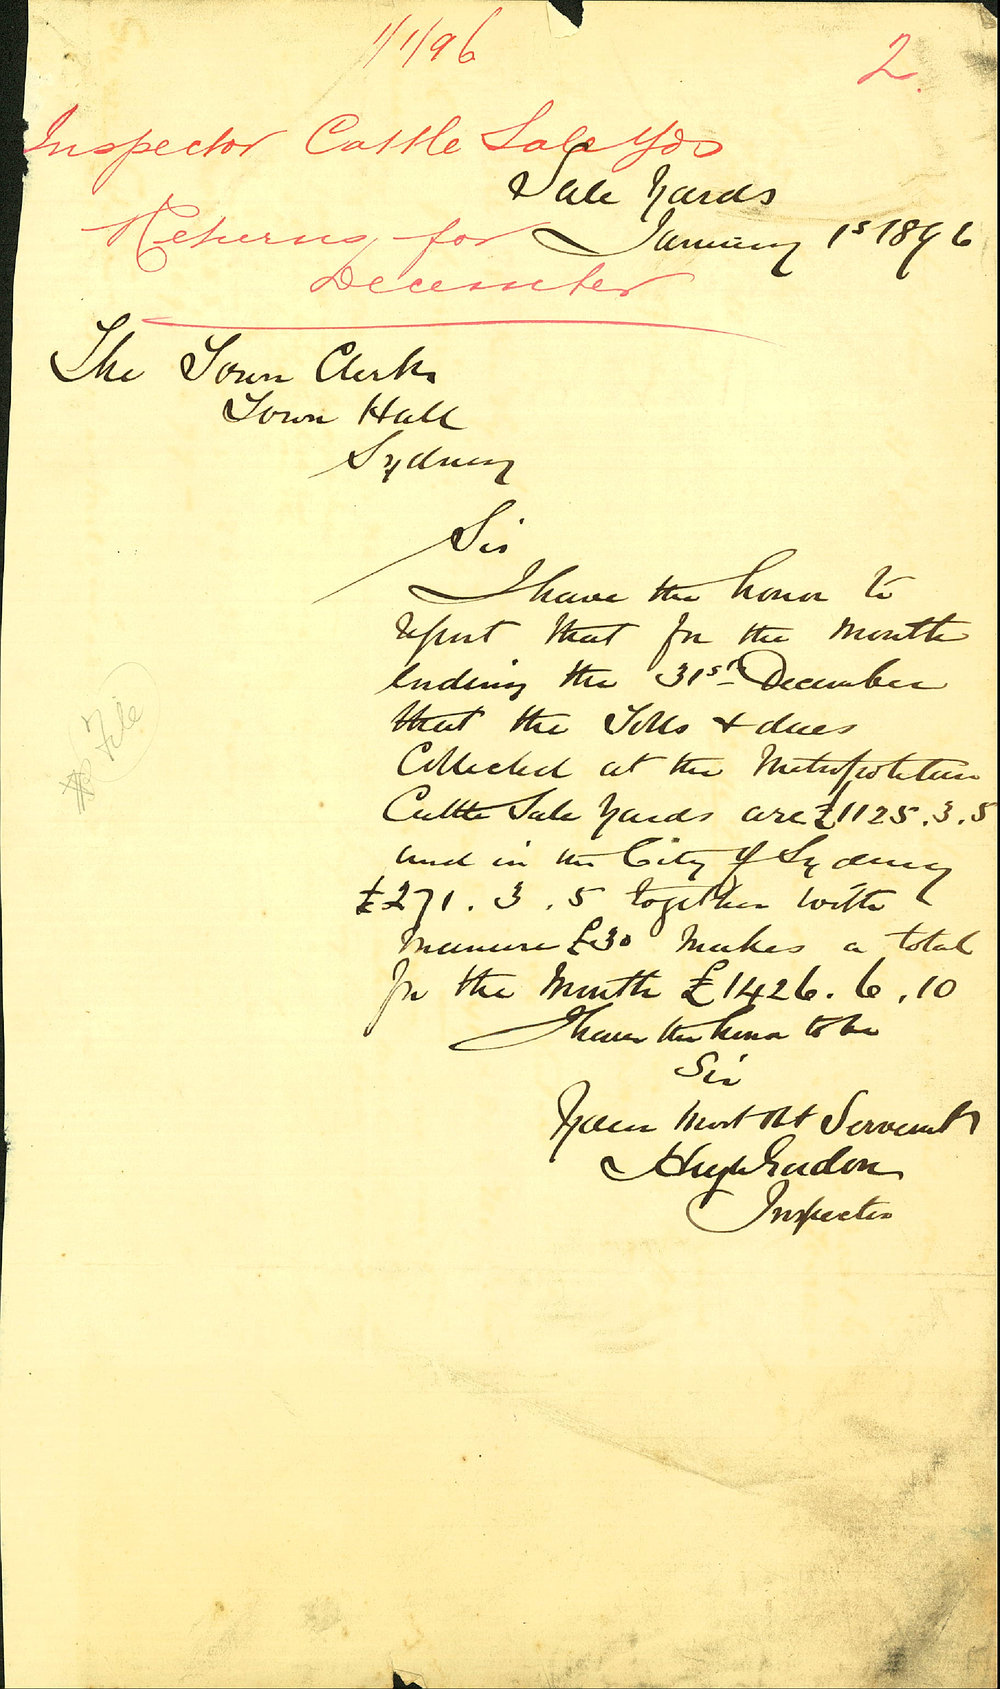 1/1/96
2.
Inspector Cattle Sale Yds
Returns for
December
Sale Yards
January 1st 1896
The Town Clerk
Town Hall
Sydney
Sir
I have the honor to
report that for the Month
ending the 31st December
that the Tolls & dues
Collected at the Metropolitan
Cattle Sale Yards are £1125.3.5
and in the City of Sydney
£271.3.5 together with
manure £30 makes a total
for the Month £1426.6.10
I have the honor to be
Sir
Your Most Obt Servant
Hugh Gordon
Inspector
File